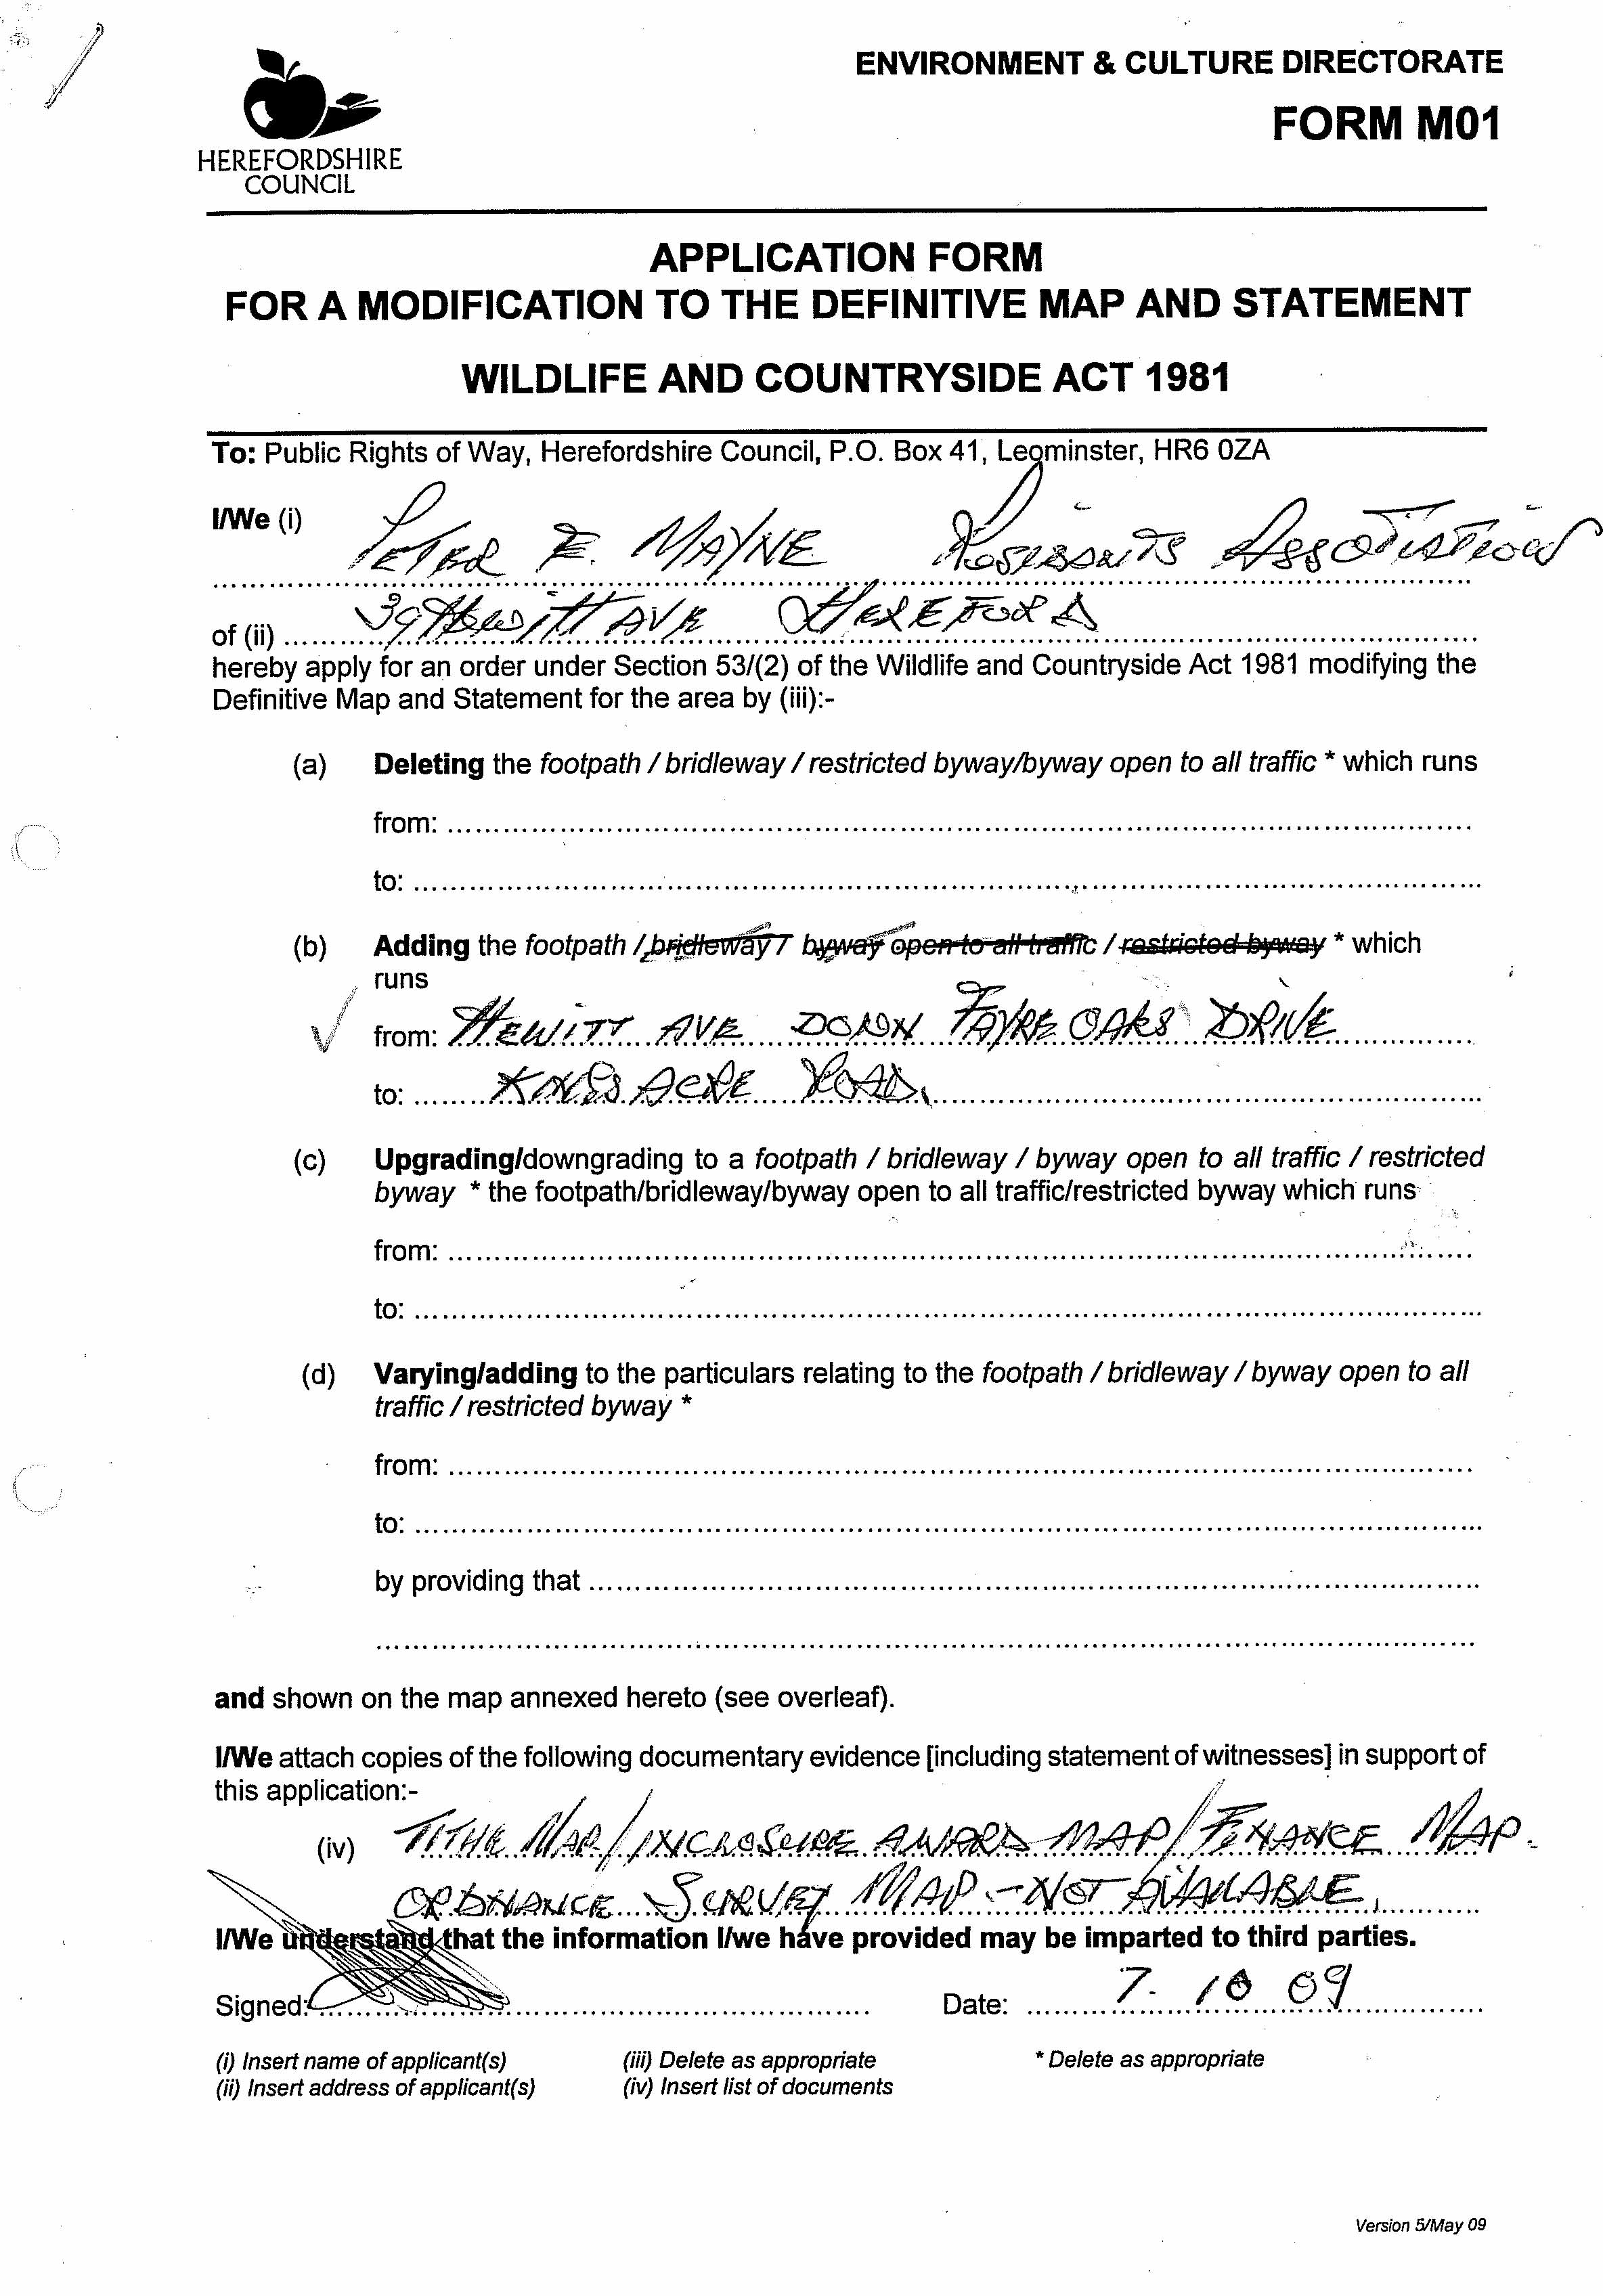 ENVIRONMENT & CULTURE DIRECTORATE
FORM M01
HEREFORDSHIRE
COUNCIL
APPLICATION FORM
FOR A MODIFICATION TO THE DEFINITIVE MAP AND STATEMENT
WILDLIFE AND COUNTRYSIDE ACT 1981
To: Public Rights of Way, Herefordshire Council, P.O. Box 41, Leominster, HR6 0ZA
I/We (i) PETER E. MAYNE Residents Association
of (ii) 39 Hewitt AVE HEREFORD
hereby apply for an order under Section 53/(2) of the Wildlife and Countryside Act 1981 modifying the
Definitive Map and Statement for the area by (iii):-
(a) Deleting the footpath / bridleway / restricted byway/byway open to all traffic * which runs
from:
to:
(b) Adding the footpath / bridleway / byway open to all traffic / restricted byway * which
runs
from: HEWITT AVE DOWN FAYRE OAKS DRIVE
to: KINGS ACRE ROAD.
(c) Upgrading/downgrading to a footpath / bridleway / byway open to all traffic / restricted
byway * the footpath/bridleway/byway open to all traffic/restricted byway which runs
from:
to:
(d) Varying/adding to the particulars relating to the footpath / bridleway / byway open to all
traffic / restricted byway *
from:
to:
by providing that
and shown on the map annexed hereto (see overleaf).
I/We attach copies of the following documentary evidence [including statement of witnesses] in support of
this application:-
(iv) TITHE MAP / INCLOSURE AWARD MAP / FINANCE MAP.
ORDNANCE SURVEY MAP - NOT AVAILABLE.
I/We understand that the information I/we have provided may be imparted to third parties.
Signed: Date: 7. 10 09
(i) Insert name of applicant(s) (iii) Delete as appropriate * Delete as appropriate
(ii) Insert address of applicant(s) (iv) Insert list of documents
Version 5/May 09